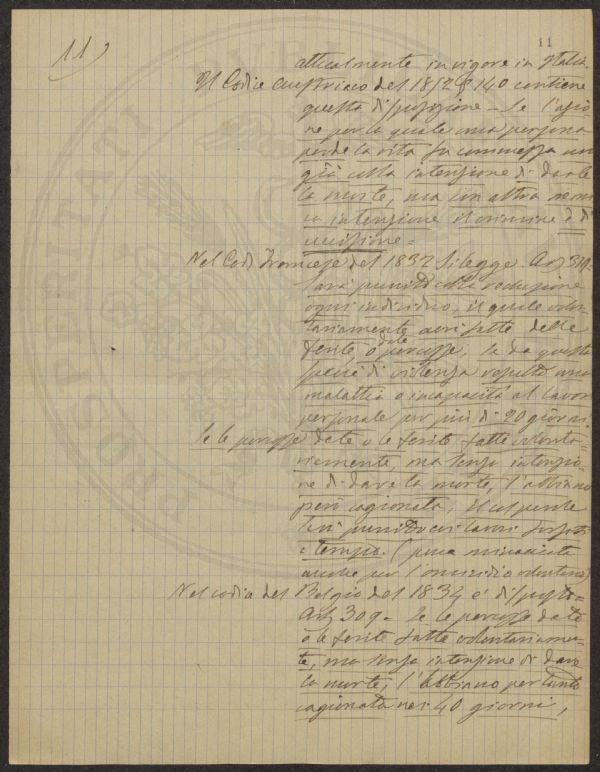 11)
11
attualmente in vigore in Italia.
Il Codice austriaco del 1852 § 140 contiene
questa disposizione - Se l'azio
ne per la quale una persona
perde la vita fu commessa non
già colla intenzione di darle
la morte, ma con altra nemi
ca intenzione il crimine è di
uccisione =
Nel Cod. Francese del 1832 si legge. Art. 309
Sarà punito colla reclusione
ogni individuo, il quale volon
tariamente avrà fatte delle
ferite, o date percosse, se da questa
specie di violenza
malattia o incapacità al lavoro
personale per più di 20 giorni.
Se le percosse date o le ferite fatte volonta-
riamente, ma senza intenzio-
ne di dare la morte, l'abbiano
però cagionata, il colpevole
sarà punito coi lavori forzati
a tempo. (pena minacciata
anche per l'omicidio volontario)
Nel codice del Belgio del 1834 è disposto =
Art. 309 - Se le percosse date
o le ferite fatte volontariamen-
te, ma senza intenzione di dare
la morte, l'abbiano pertanto
cagionata nei 40 giorni,